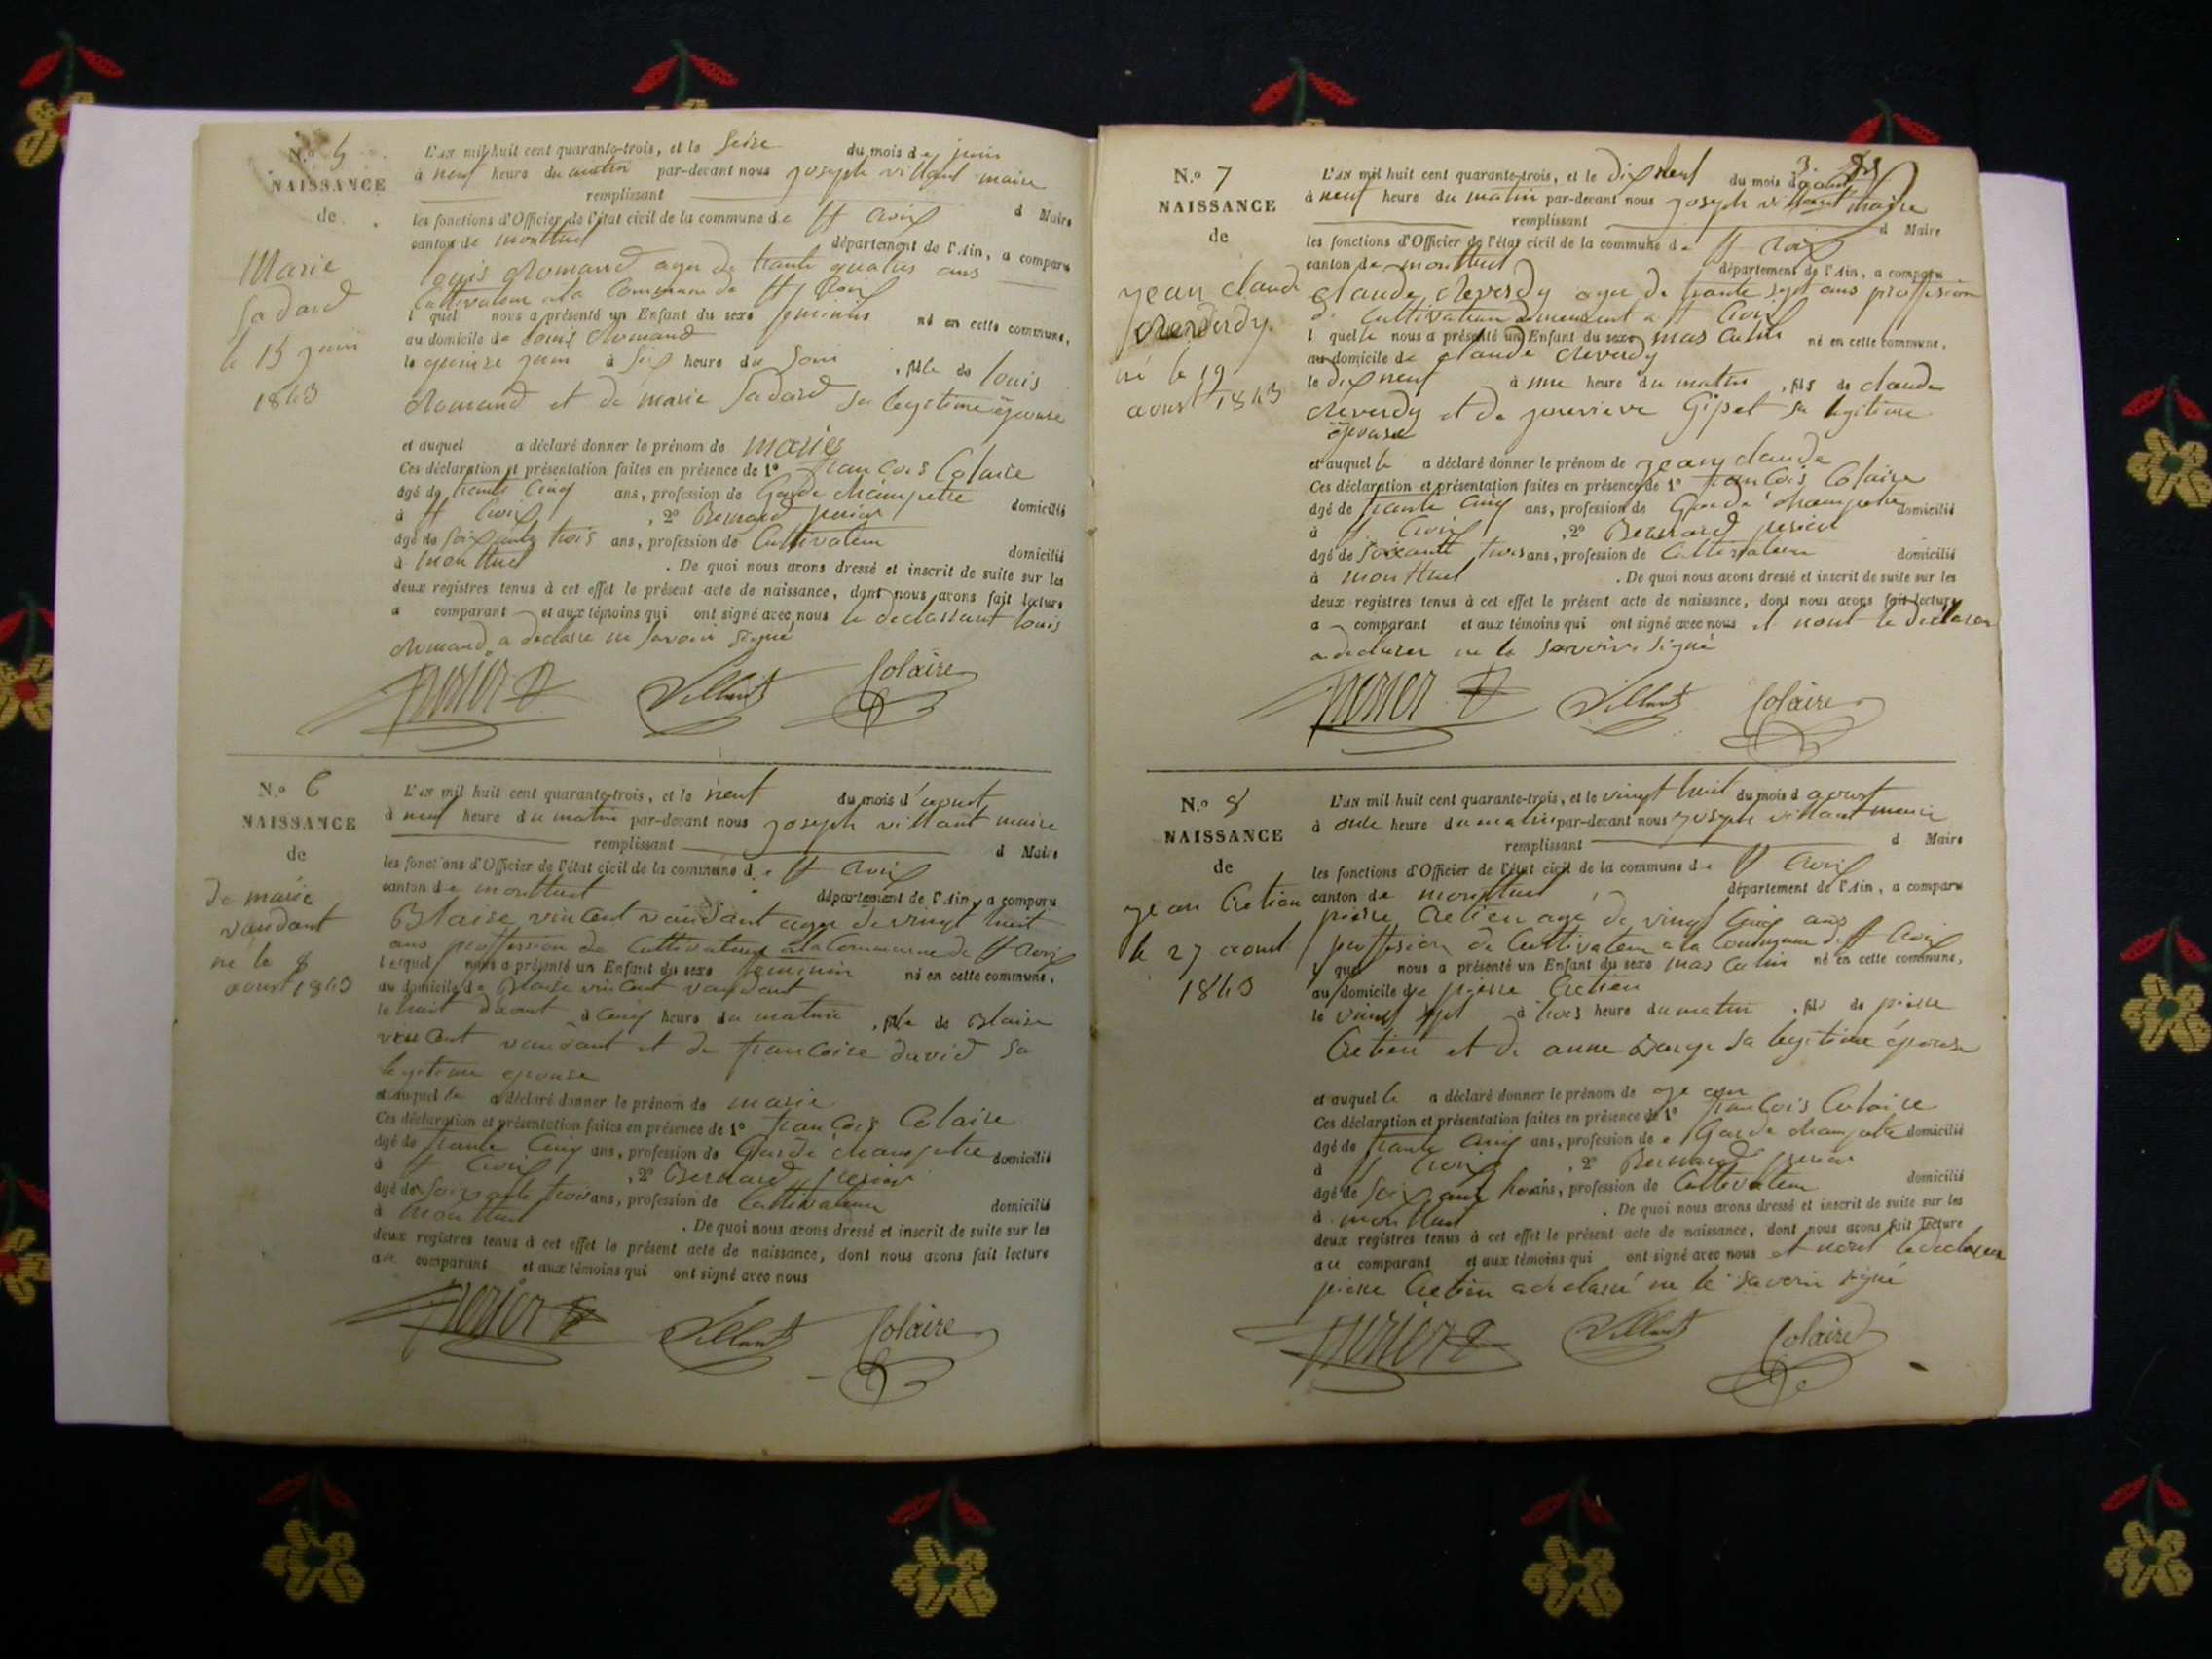 N.o 5
NAISSANCE
de
Marie
Sadard
le 15 juin
1843
L'AN mil huit cent quarante-trois, et le Seize du mois de juin
à neuf heure du matin par-devant nous joseph villant maire
remplissant d Maire
les fonctions d'Officier de l'état civil de la commune de St Croix
canton de montluel département de l'Ain, a comparu
louis Romand agee de trante quatres ans
Cultivateur a la Commune de St Croix
l quel nous a présenté un Enfant du sexe feminin né en cette commune,
au domicile de louis Romand
le quinize juin à Six heure du Soir , fille de louis
Romand et de marie Sadard sa legitime épouse
et auquel a déclaré donner le prénom de marie
Ces déclaration et présentation faites en présence de 1° francois Colaire
âgé de trante Cinq ans, profession de Garde champetre domicilié
à St Croix , 2° Bernard perier
âgé de Soixante trois ans, profession de Cultivateur domicilié
à montluel . De quoi nous avons dressé et inscrit de suite sur les
deux registres tenus à cet effet le présent acte de naissance, dont nous avons fait lecture
a comparant et aux témoins qui ont signé avec nous le declarant louis
Romand a declare ne savoir signé
perier Villant Colaire
N.o 6
NAISSANCE
de
De marie
vandant
ne le 8
aoust 1843
L'AN mil huit cent quarante-trois, et le neuf du mois d'aoust
à neuf heure du matin par-devant nous joseph villant maire
remplissant d Maire
les fonctions d'Officier de l'état civil de la commune de St Croix
canton de montluel département de l'Ain, a comparu
Blaise vincent vandant agee de vingt huit
ans proffession de Cultivateur a la Commune de St Croix
lequel nous a présenté un Enfant du sexe feminin né en cette commune,
au domicile de Blaise vincent vandant
le huit daoust à Cinq heure du matin , fille de Blaise
vincent vandant et de francoise david sa
legitime epouse
et auquel le a déclaré donner le prénom de marie
Ces déclaration et présentation faites en présence de 1° francois Colaire
âgé de trante Cinq ans, profession de Garde champetre domicilié
à St Croix , 2° Bernard perier
âgé de Soixante trois ans, profession de Cultivateur domicilié
à montluel . De quoi nous avons dressé et inscrit de suite sur les
deux registres tenus à cet effet le présent acte de naissance, dont nous avons fait lecture
au comparant et aux témoins qui ont signé avec nous
perier Villant Colaire
3.
N.o 7
NAISSANCE
de
jean claude
Reverdy
né le 19
aoust 1843
L'AN mil huit cent quarante-trois, et le dix neuf du mois d aoust
à neuf heure du matin par-devant nous joseph villant maire
remplissant d Maire
les fonctions d'Officier de l'état civil de la commune de St Croix
canton de montluel département de l'Ain, a comparu
claude Reverdy agee de trante sept ans proffesion
de Cultivateur demeurant a St Croix
l quelle nous a présenté un Enfant du sexe mas Culin né en cette commune,
au domicile de claude Reverdy
le dix neuf à une heure du matin , fils de claude
Reverdy et de jenevieve Gipet sa legitime
épouse
et auquel le a déclaré donner le prénom de jean claude
Ces déclaration et présentation faites en présence de 1° francois Colaire
âgé de trante Cinq ans, profession de Garde champetre domicilié
à St Croix , 2° Bernard perier
âgé de Soixante trois ans, profession de Cultivateur domicilié
à montluel . De quoi nous avons dressé et inscrit de suite sur les
deux registres tenus à cet effet le présent acte de naissance, dont nous avons fait lecture
a comparant et aux témoins qui ont signé avec nous et nont le
a declarer ne le savoire signé
perier Villant Colaire
N.o 8
NAISSANCE
de
jean Cretien
le 27 aoust
1843
L'AN mil huit cent quarante-trois, et le vingt huit du mois d aoust
à onze heure du matin par-devant nous joseph villant
remplissant d Maire
les fonctions d'Officier de l'état civil de la commune de St Croix
canton de montluel département de l'Ain, a comparu
pierre Cretien agé de vingt Cinq ans
proffesion de Cultivateur a la Commune de St Croix
l quel nous a présenté un Enfant du sexe mas Culin né en cette commune,
au domicile de pierre Cretien
le vingt sept à trois heure du matin , fils de pierre
Cretien et de anne sa legitime épouse
et auquel le a déclaré donner le prénom de jean
Ces déclaration et présentation faites en présence de 1° francois Colaire
âgé de trante Cinq ans, profession de Garde champetre domicilié
à St Croix , 2° Bernard perier
âgé de Soixante trois ans, profession de Cultivateur domicilié
à montluel . De quoi nous avons dressé et inscrit de suite sur les
deux registres tenus à cet effet le présent acte de naissance, dont nous avons fait lecture
au comparant et aux témoins qui ont signé avec nous et nont
pierre Cretien a declaré ne le savoir signé
perier Villant Colaire